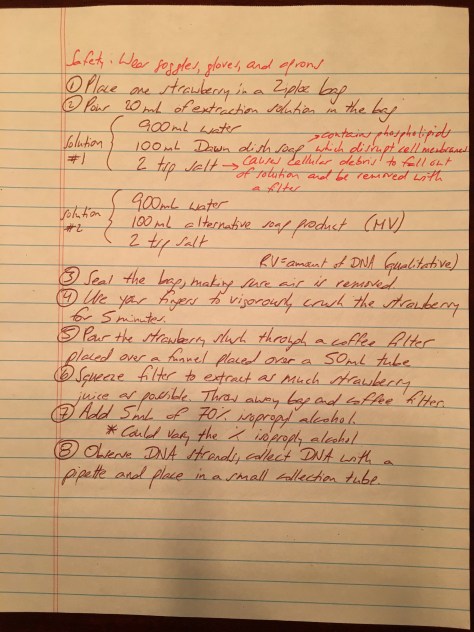 Safety. Wear goggles, gloves, and aprons
① Place one strawberry in a Ziploc bag
② Pour 20ml of extraction solution in the bag
Solution #1 { 900ml water
100ml Dawn dish soap → contains phospholipids which disrupt cell membranes
2 tsp salt → causes cellular debris to fall out of solution and be removed with a filter
Solution #2 { 900ml water
100ml alternative soap product (MV)
2 tsp salt
RV=amount of DNA (qualitative)
③ Seal the bag, making sure air is removed
④ Use your fingers to vigorously crush the strawberry
for 5 minutes.
⑤ Pour the strawberry slush through a coffee filter
placed over a funnel placed over a 50ml tube
⑥ Squeeze filter to extract as much strawberry
juice as possible. Throw away bag and coffee filter.
⑦ Add 5ml of 70% isopropyl alcohol.
* Could vary the % isoproply alcohol
⑧ Observe DNA strands, collect DNA with a
pipette and place in a small collection tube.